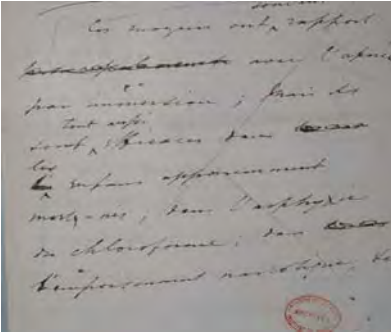 souvent
Ces moyens ont rapport
avec l'apnée
par immersion ; mais ils
tout aussi
sont efficaces dans
les
enfans apparemment
morts-nés ; dans l'asphyxie
du chloroforme ; dans
l'empoisonnement narcotique,